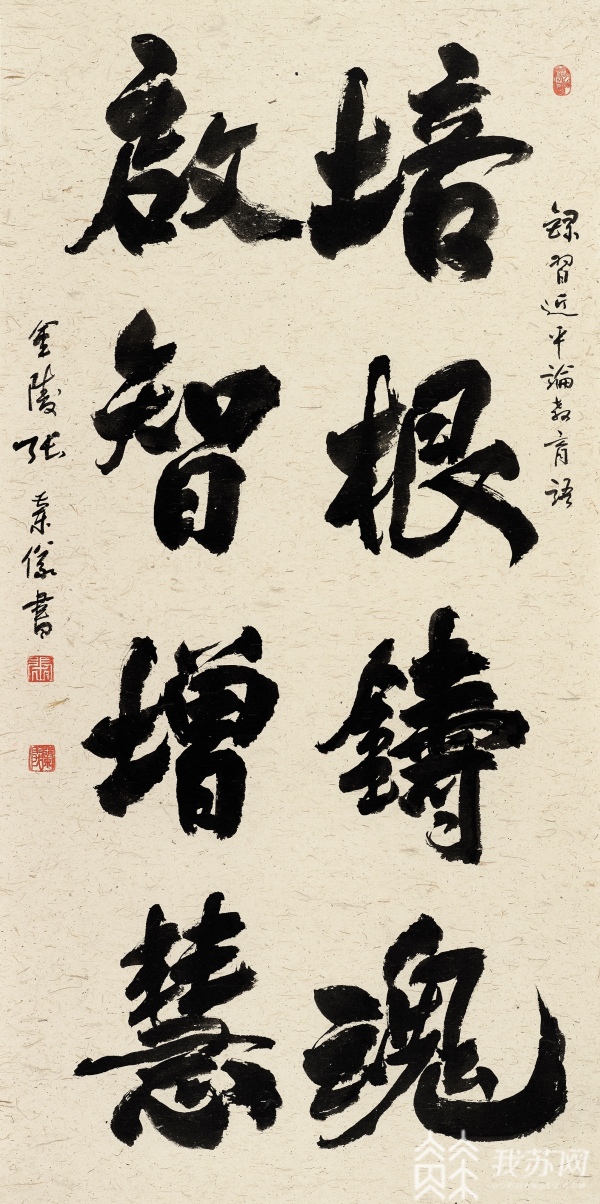 錄習近平論教育語
培根鑄魂
啟智增慧
金陵張業儀書
我苏网